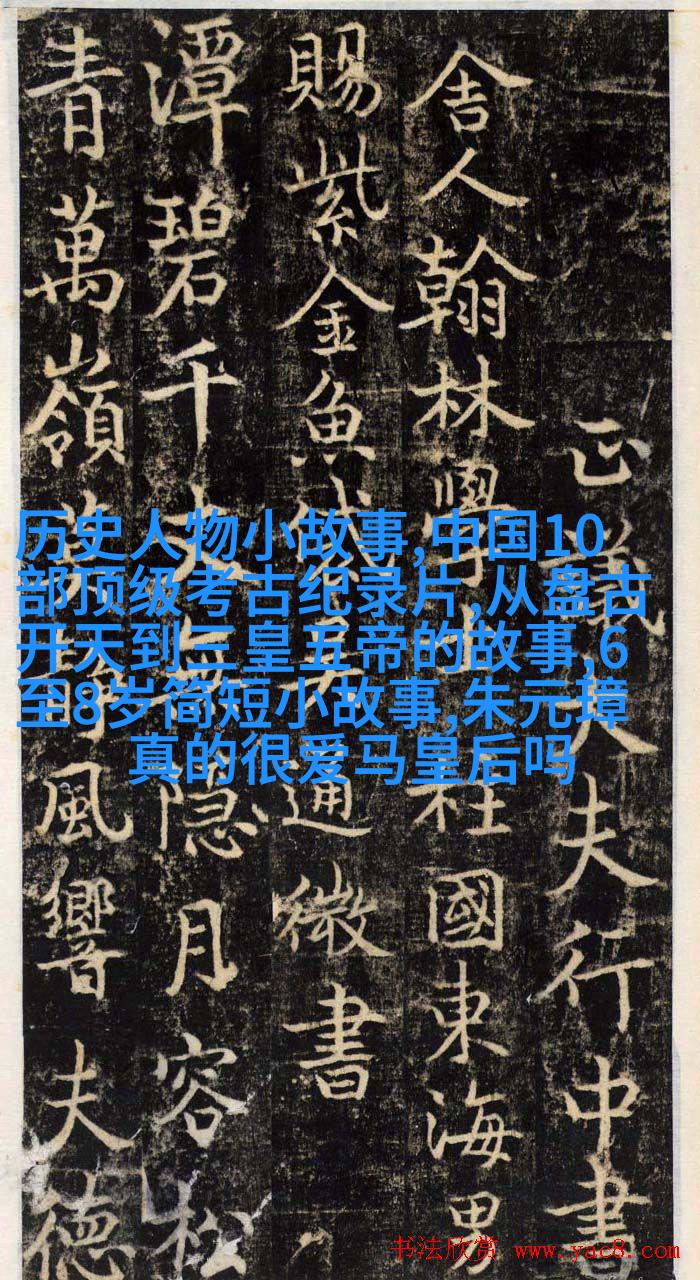 正議大夫行中書
舍人翰林學士柱國東海男
賜紫金魚袋吳通微書
潭碧千丈無隱月容松
青萬嶺風響夫德
历史人物小故事,中国10
部顶级考古纪录片,从盘古
开天到三皇五帝的故事,6
至8岁简短小故事,朱元璋
真的很爱马皇后吗
书法欣赏 www.yac8.com